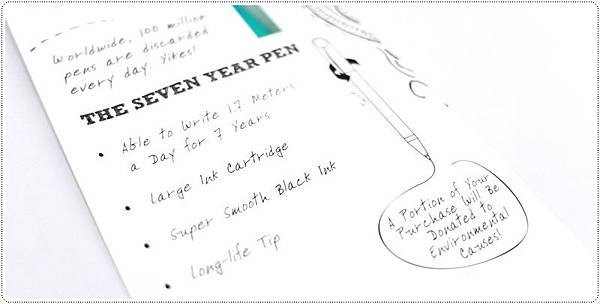 Worldwide, 100 million
pens are discarded
every day. Yikes!
THE SEVEN YEAR PEN
• Able to Write 1.7 Meters
a Day for 7 Years
• Large Ink Cartridge
• Super Smooth Black Ink
• Long-life Tip
A Portion of Your
Purchase Will Be
Donated to
Environmental
Causes!